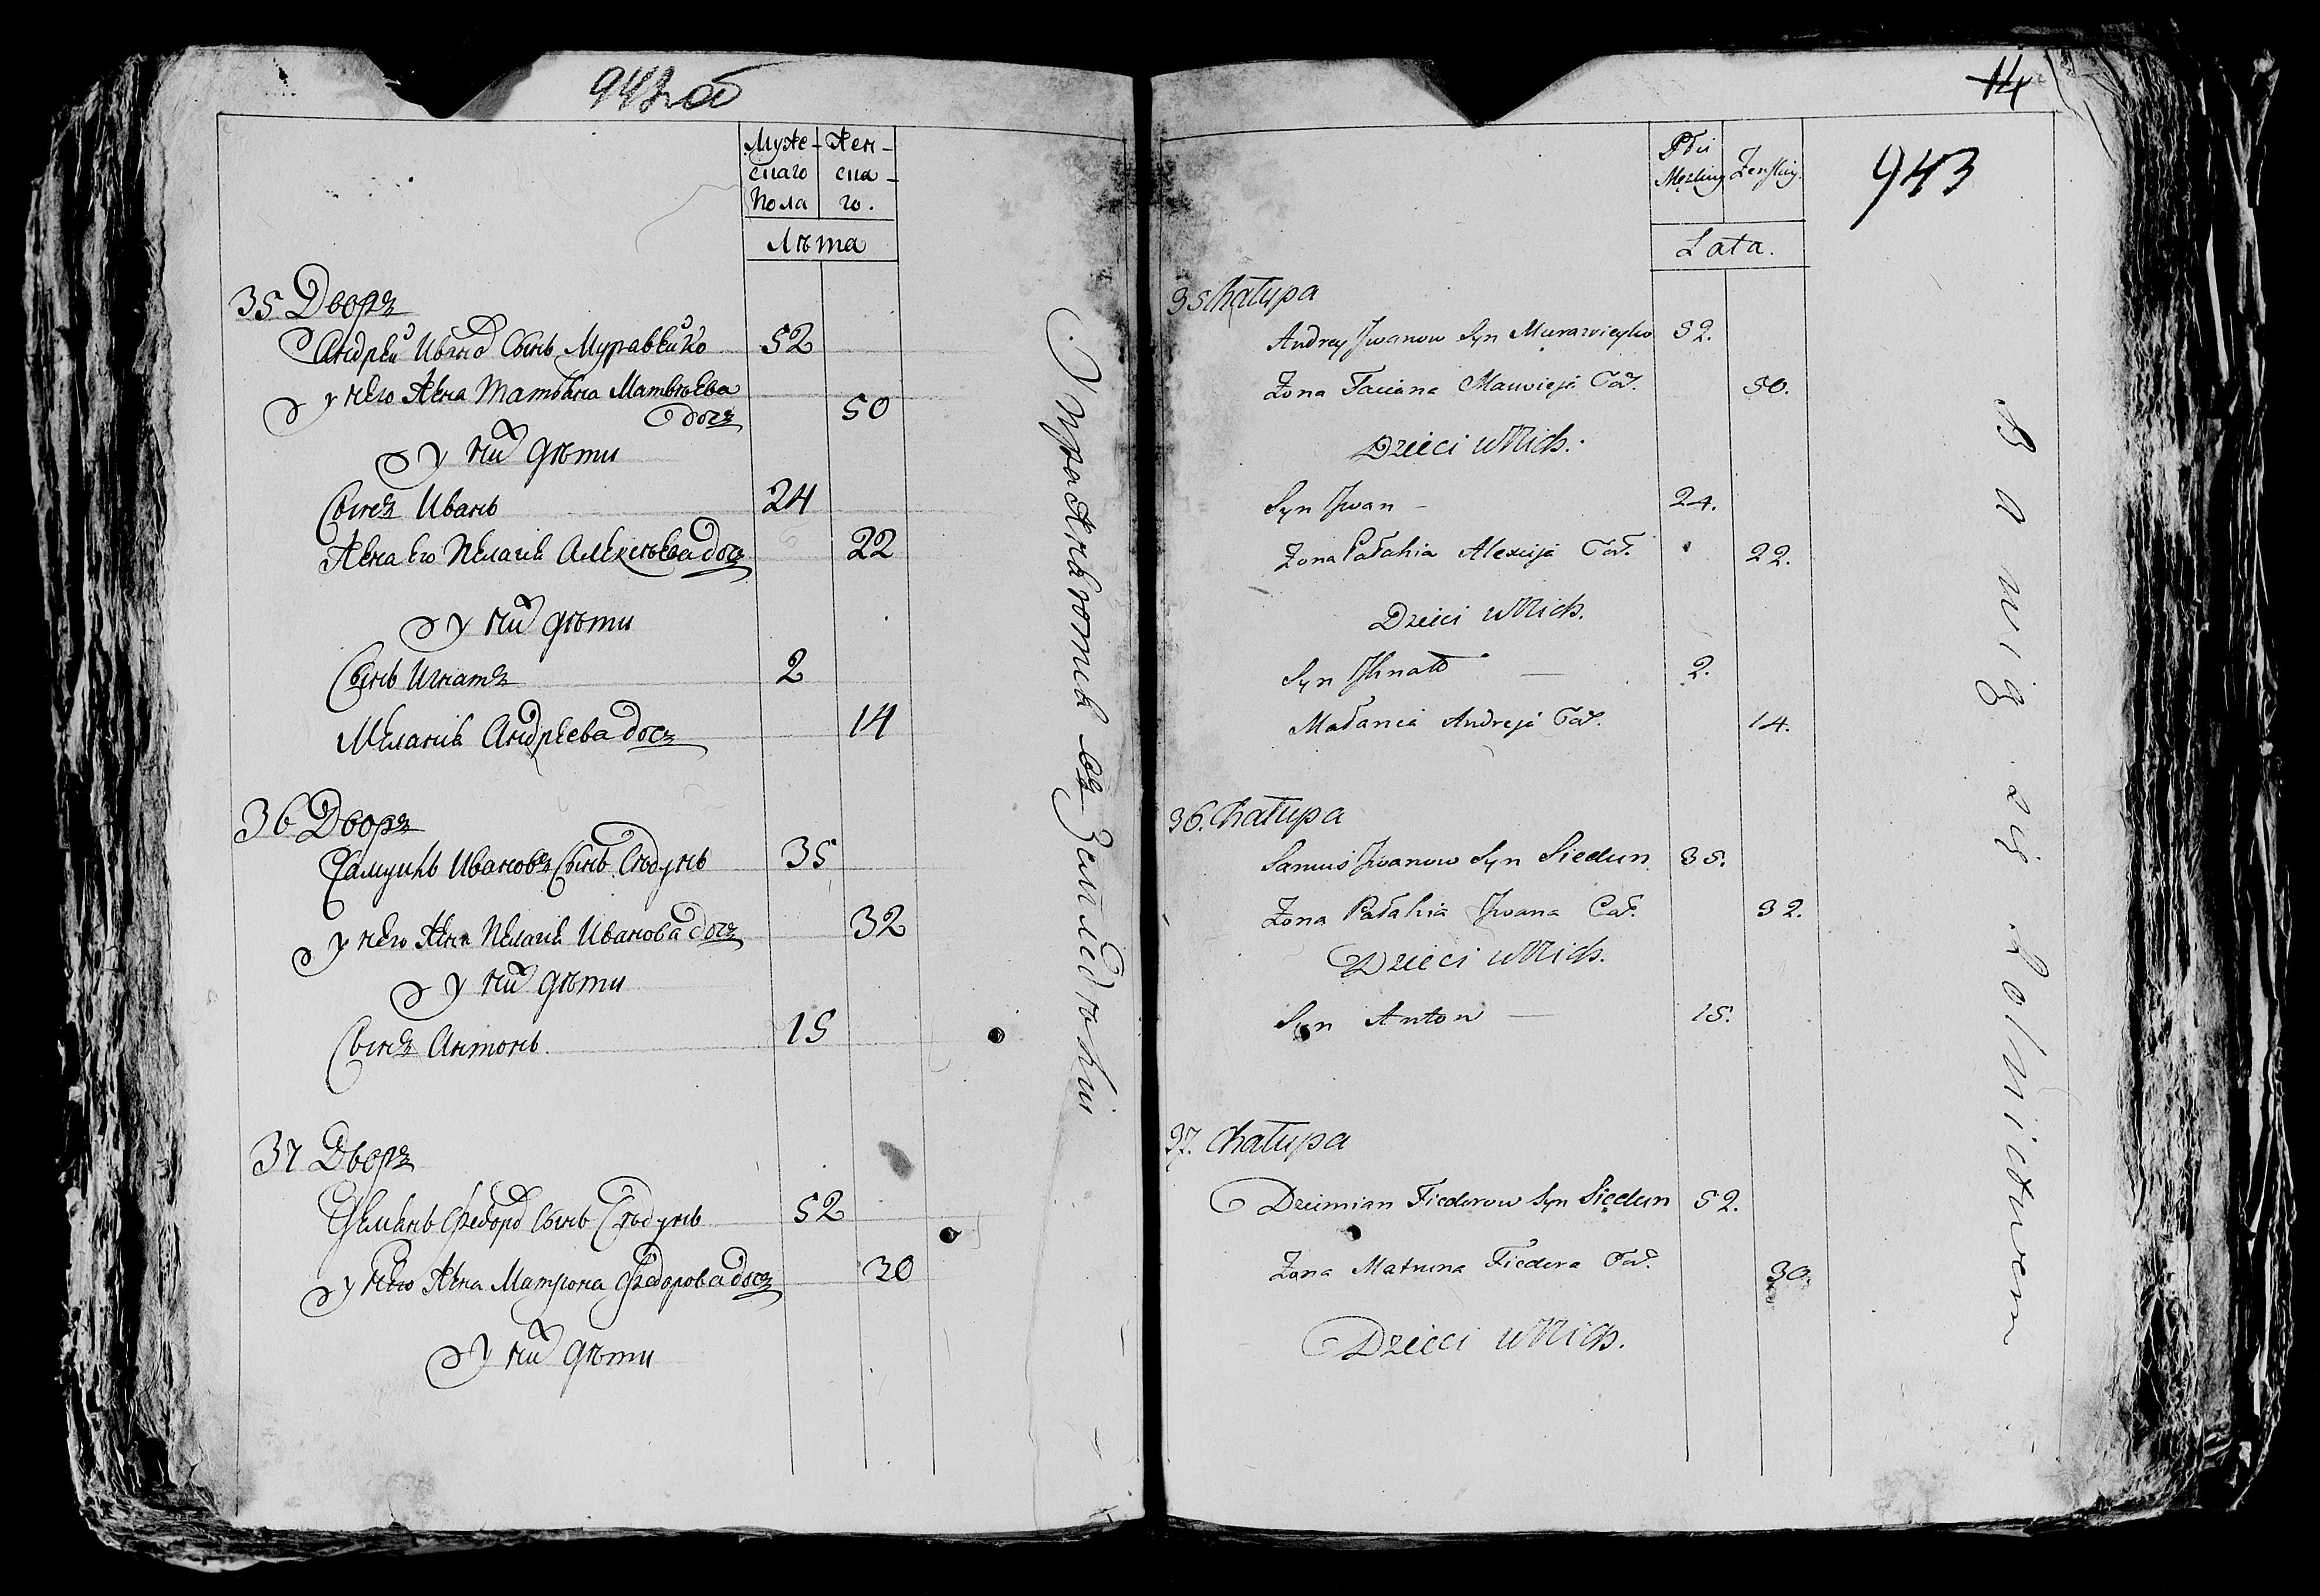 942об
Муже-
скаго
Пола
Жен-
ска-
го.
Лѣта
35 Дворъ
Андрей Иванов Сынь Муравейко 52
у него Жена Татьяна Матвѣева
дочъ 50
у них дѣти
Сынъ Иванъ 24
Жена Его Пелагия Алексѣева дочъ 22
у них дѣти
Сынъ Игнатъ 2
Мелания Андреева дочъ 14
36 Дворъ
Самуилъ Ивановъ Сынъ Сѣдунъ 35
у него Жена Пелагия Иванова дочъ 32
у них дѣти
Сынъ Антонъ. 15
37 Дворъ
Демьянъ Федоров Сынъ Сѣдунъ 52
у него Жена Матрона Федорова дочъ 30
у них дѣти
Упражняются въ Земледѣлии
14
943
Płci
Męzkiey
Zenskiey.
Lata.
35 Chałupa
Andrey Jwanow Syn Murawieyko 52.
Zona Taciana Maᴛwieja Cór. 50.
Dzieci u Nich.
Syn Jwan 24.
Zona Pałahia Alexieja Cór. 22.
Dzieci u Nich.
Syn Jhnat 2.
Małania Andreja Cór. 14.
36. Chałupa
Samuś Jwanow Syn Siedun 35.
Zona Pałahia Jwana Cór. 32.
Dzieci u Nich.
Syn Anton 15.
37. Chałupa
Dziemian Fiedorow Syn Siedun 52.
Zona Matruna Fiedora Cór. 30.
Dzieci u Nich.
Bawią się Rolnictwem